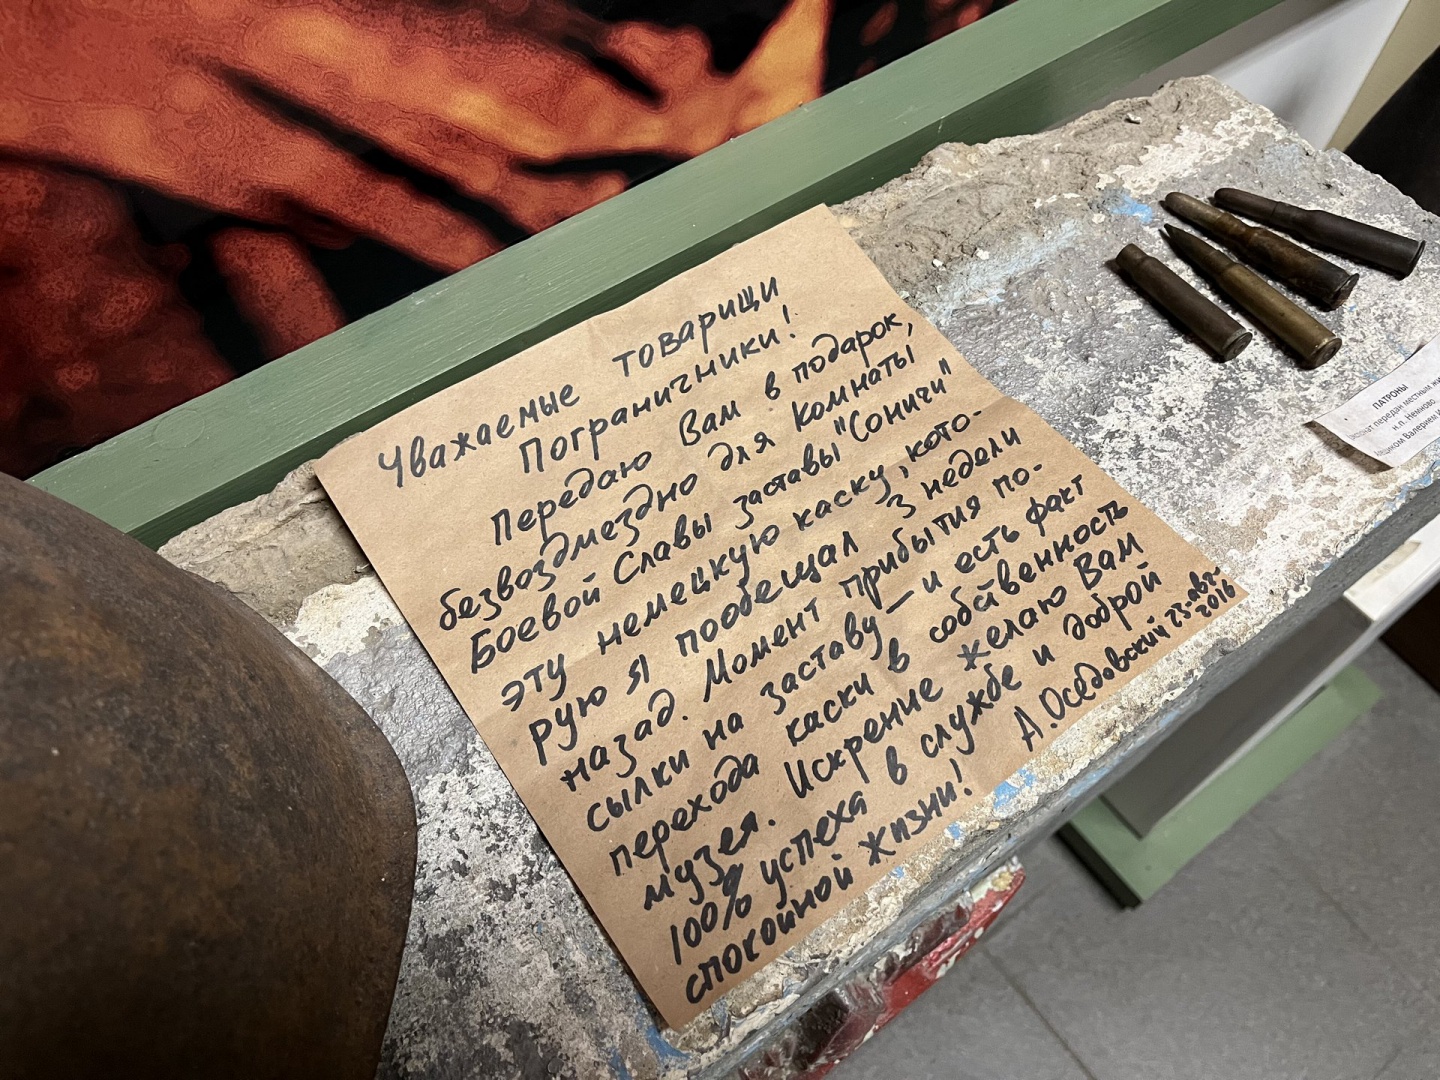 Уважаемые товарищи
Пограничники!
Передаю Вам в подарок,
безвозмездно для комнаты
Боевой Славы заставы "Соничи"
эту немецкую каску, кото-
рую я пообещал 3 недели
назад. Момент прибытия по-
сылки на заставу – и есть факт
перехода каски в собственность
музея. Искренне желаю Вам
100% успеха в службе и доброй
спокойной жизни!
А.Оседовский 23.авг.
2016
ПАТРОНЫ
передан местным
н.п. Немново
Валерием